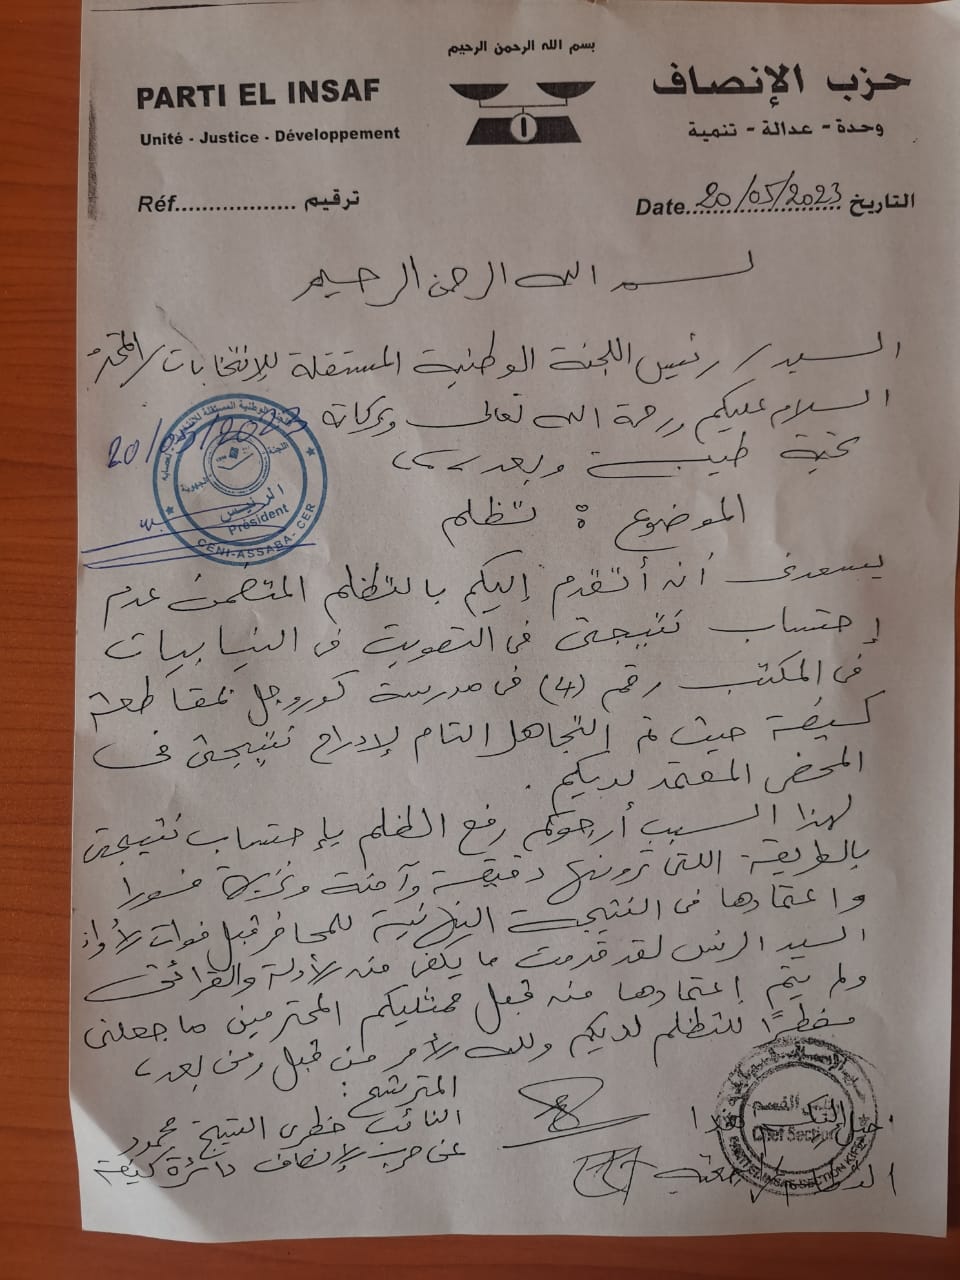 بسم الله الرحمن الرحيم
PARTI EL INSAF
حزب الإنصاف
Unité - Justice - Développement
وحدة - عدالة - تنمية
Réf.................. ترقيم
Date..20/05/2023 التاريخ
بسم الله الرحمن الرحيم
السيد / رئيس اللجنة الوطنية المستقلة للإنتخابات / المحترم
السلام عليكم ورحمة الله تعالى وبركاته
تحية طيبة وبعد،،،
20/05/2023
اللجنة الوطنية المستقلة للانتخابات
اللجنة الجهوية
الرئيس
Président
CENI-ASSABA-CER
الموضوع : تظلم
يسعدني أن أتقدم إليكم بالتظلم المتضمن عدم
إحتساب نتيجتي في التصويت في النيابيات
في المكتب رقم (4) في مدرسة كوروجل بمقاطعة
كيفة حيث تم التجاهل التام لإدراج نتيجتي في
المحضر المعتمد لديكم.
لهذا السبب أرجوكم رفع الظلم بإحتساب نتيجتي
بالطريقة اللتي ترونها دقيقة وآمنة ونزيهة فورا
واعتمادها في النتيجة النهائية للمحاضر قبل فوات الأوان
السيد الرئس لقد قدمت ما يكفي من الأدلة والقرائن
ولم يتم إعتمادها من قبل ممثليكم المحترمين ما جعلني
مضطرًا للتظلم لديكم ولله الأمر من قبل ومن بعد،
المترشح :
النائب خطري الشيخ محمود
عن حزب الإنصاف دائرة كيفة
القسم
Chef Section
PARTI EL INSAF SECTION KIFFA